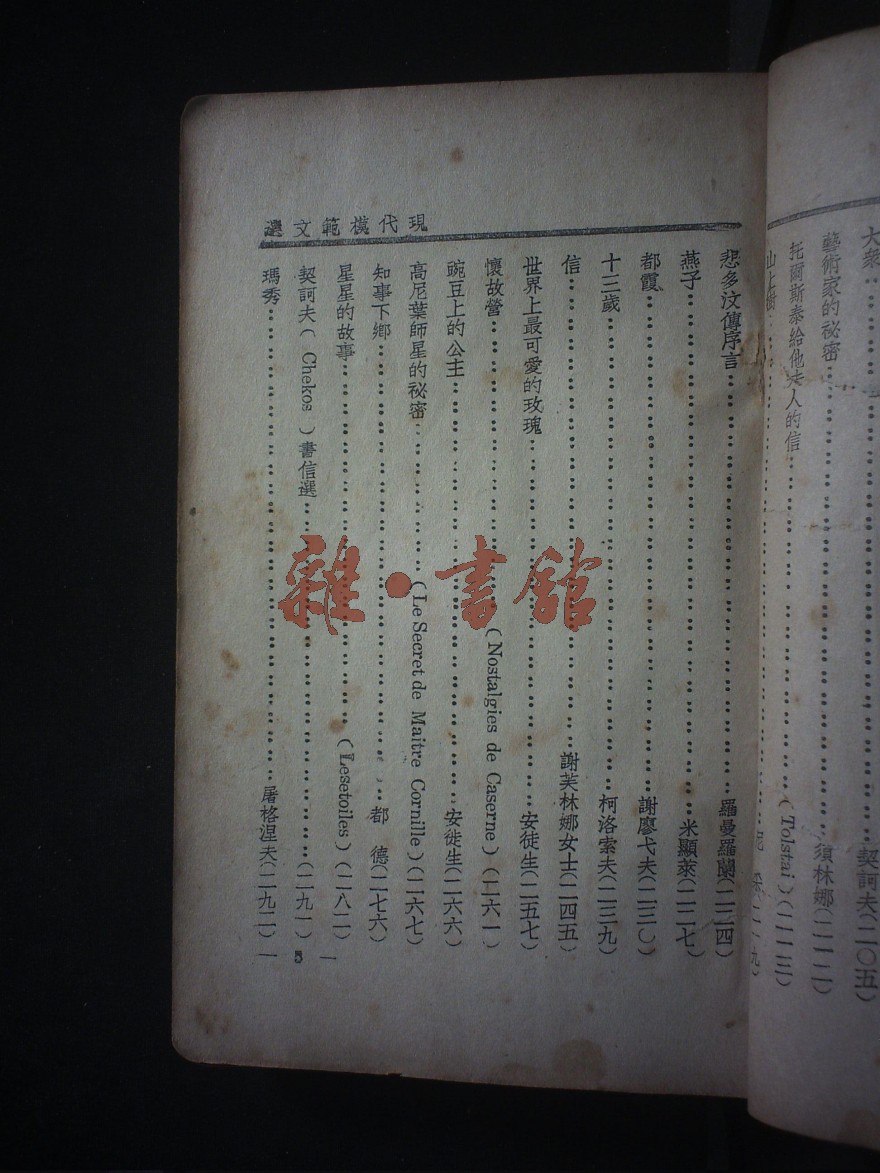 大衆…………契訶夫(二〇五)
藝術家的祕密…………須林娜(二一二)
托爾斯泰給他夫人的信…………(Tolstai)(二一三)
現代模範文選
悲多汶傳序言…………羅曼羅蘭(二二四)
燕子…………米顯萊(二二七)
都霞…………謝廖弋夫(二三〇)
十三歲…………柯洛索夫(二三九)
信…………謝芙林娜女士(二四五)
世界上最可愛的玫瑰…………安徒生(二五七)
懷故營…………(Nostalgies de Caserne)(二六一)
豌豆上的公主…………安徒生(二六六)
高尼葉師星的祕密…………(Le Secret de Maitre Cornille)(二六七)
知事下鄉…………都 德(二七六)
星星的故事…………(Lesetoiles)(二八二)
契訶夫(Chekos)書信選…………(二九一)
瑪秀…………屠格涅夫(二九二)
— 5 —
雜·書館